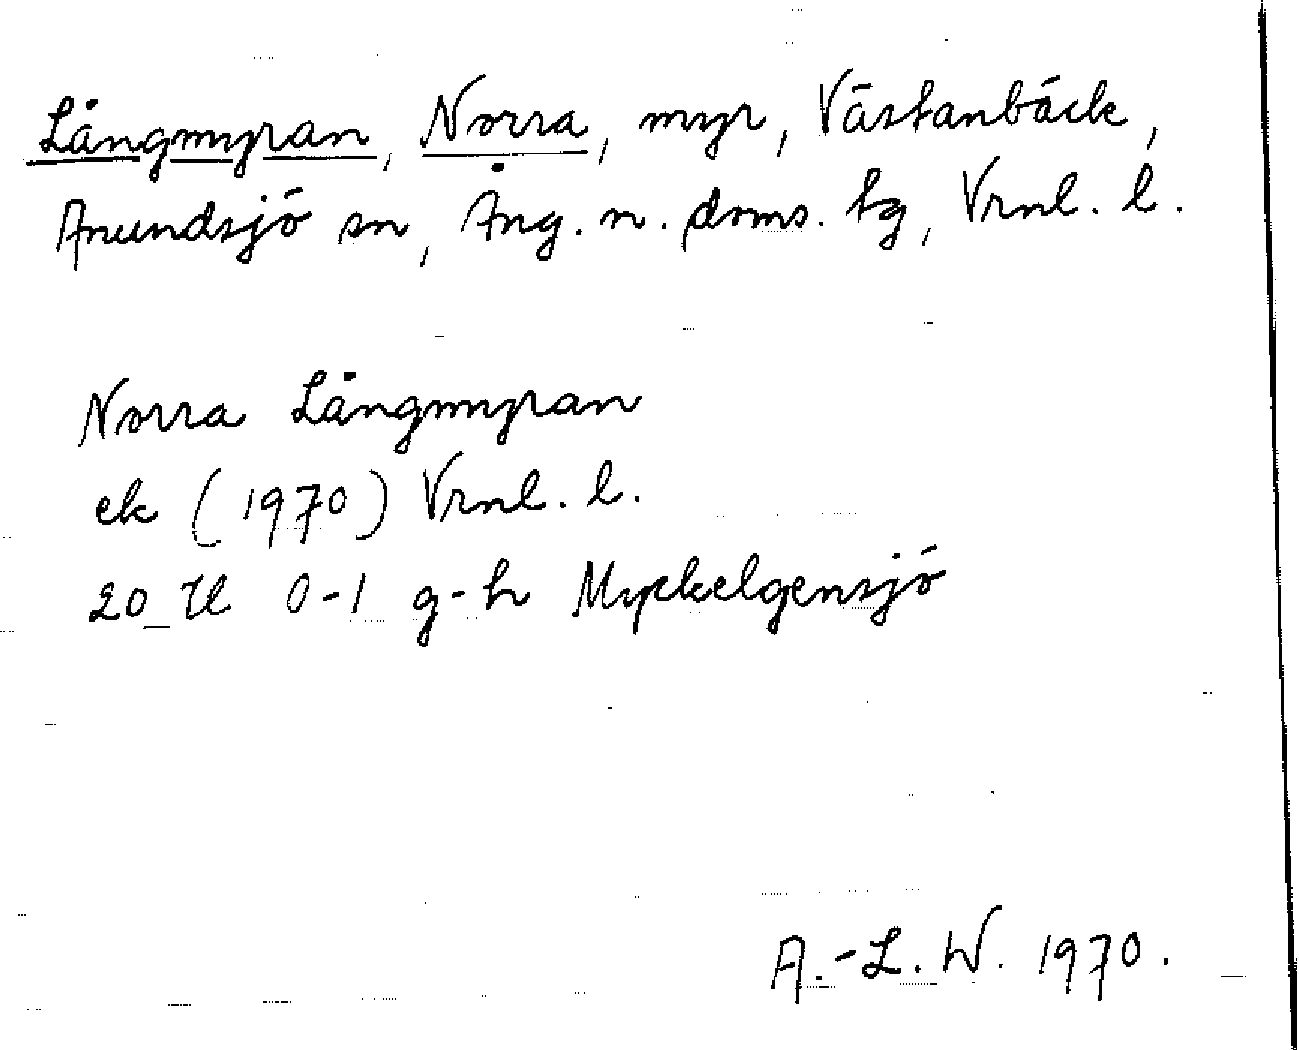 Långmyran, Norra, myr, Västanbäck,
Anundsjö sn, Ång. n. doms. tg, Vrnl. l.
Norra Långmyran
ek (1970) Vrnl. l.
20 H 0-1 g-h Myckelgensjö
A.-L. W. 1970.